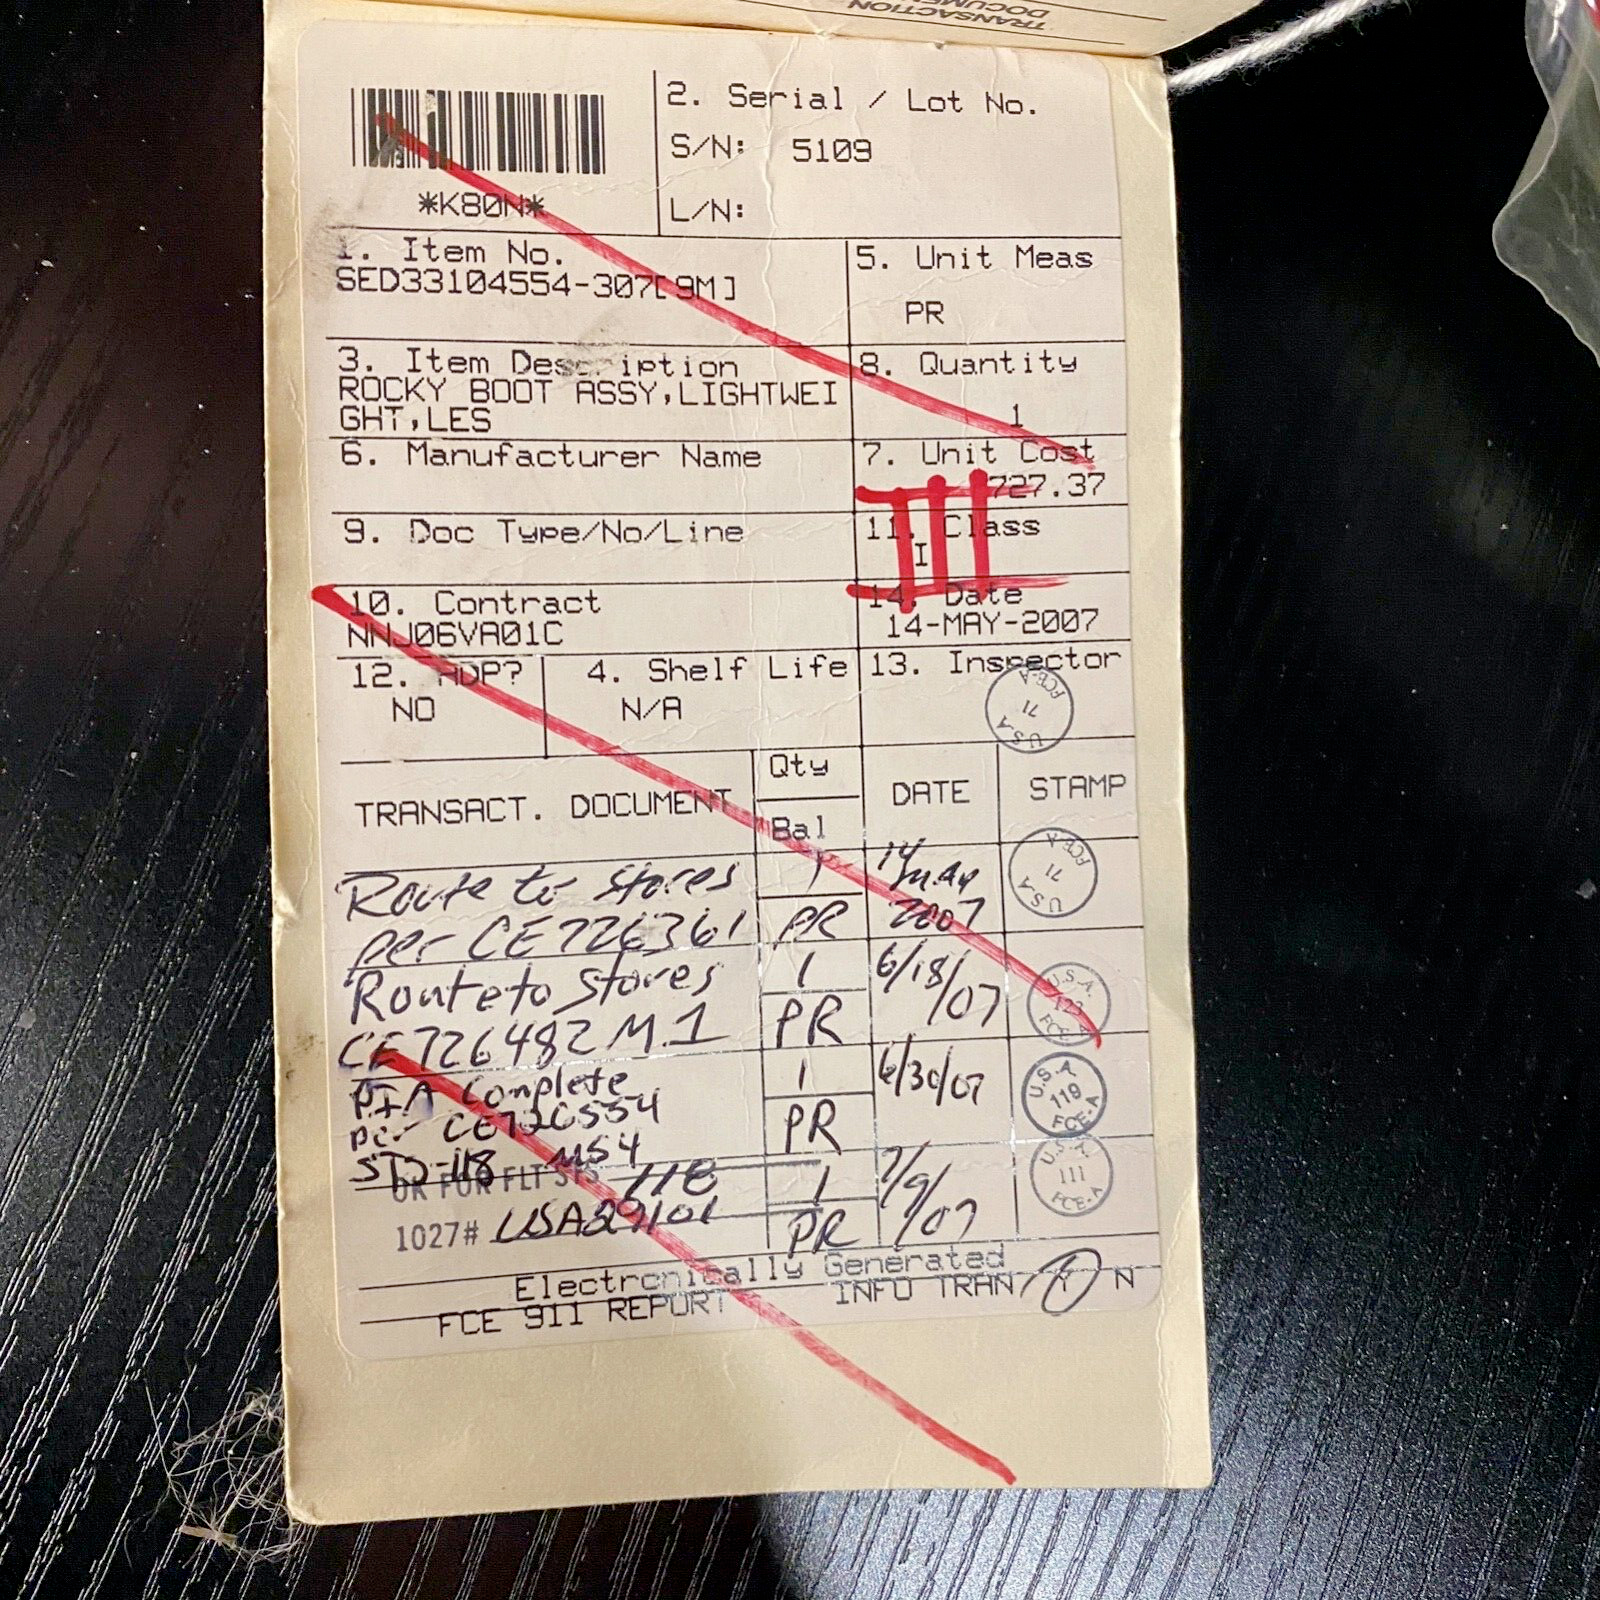 TRANSACTION
*K80N*
2. Serial / Lot No.
S/N: 5109
L/N:
1. Item No.
SED33104554-307[9M]
5. Unit Meas
PR
3. Item Description
ROCKY BOOT ASSY,LIGHTWEI
GHT,LES
8. Quantity
1
6. Manufacturer Name
7. Unit Cost
727.37
9. Doc Type/No/Line
11. Class
I
III
10. Contract
NNJ06VA01C
14. Date
14-MAY-2007
12. ADP?
NO
4. Shelf Life
N/A
13. Inspector
USA 71 FCE-A
TRANSACT. DOCUMENT
Qty
Bal
DATE
STAMP
Route to Stores
per CE726361
1
PR
14 May
2007
USA 71 FCE-A
Route to Stores
CE726482 M.1
1
PR
6/18/07
U.S.A.
FCE-A
PIA Complete
per CE726554
STD-118 M54
1
PR
6/30/07
U.S.A 119 FCE-A
OK FOR FLT STS 118
1027# USA29101
1
PR
7/9/07
U.S.A. 111 FCE-A
Electronically Generated
FCE 911 REPORT
INFO TRAN Y N